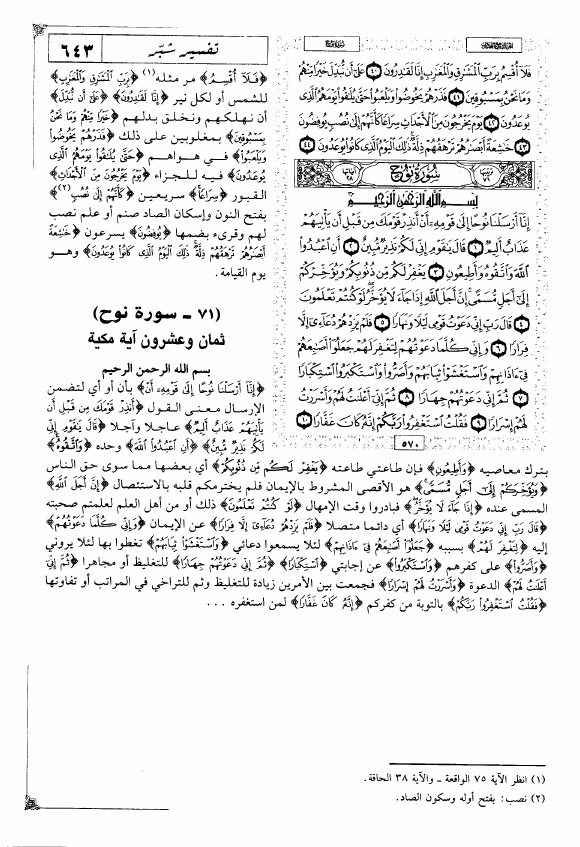 تفسير شبّر
٦٤٣
فَلَآ أُقْسِمُ بِرَبِّ ٱلْمَشَٰرِقِ وَٱلْمَغَٰرِبِ إِنَّا لَقَٰدِرُونَ ٤٠ عَلَىٰٓ أَن نُّبَدِّلَ خَيْرًا مِّنْهُمْ
وَمَا نَحْنُ بِمَسْبُوقِينَ ٤١ فَذَرْهُمْ يَخُوضُوا۟ وَيَلْعَبُوا۟ حَتَّىٰ يُلَٰقُوا۟ يَوْمَهُمُ ٱلَّذِى
يُوعَدُونَ ٤٢ يَوْمَ يَخْرُجُونَ مِنَ ٱلْأَجْدَاثِ سِرَاعًا كَأَنَّهُمْ إِلَىٰ نُصُبٍ يُوفِضُونَ
٤٣ خَٰشِعَةً أَبْصَٰرُهُمْ تَرْهَقُهُمْ ذِلَّةٌ ذَٰلِكَ ٱلْيَوْمُ ٱلَّذِى كَانُوا۟ يُوعَدُونَ ٤٤
سُورَةُ نُوحٍ
بِسْمِ ٱللَّهِ ٱلرَّحْمَٰنِ ٱلرَّحِيمِ
إِنَّآ أَرْسَلْنَا نُوحًا إِلَىٰ قَوْمِهِۦٓ أَنْ أَنذِرْ قَوْمَكَ مِن قَبْلِ أَن يَأْتِيَهُمْ
عَذَابٌ أَلِيمٌ ١ قَالَ يَٰقَوْمِ إِنِّى لَكُمْ نَذِيرٌ مُّبِينٌ ٢ أَنِ ٱعْبُدُوا۟
ٱللَّهَ وَٱتَّقُوهُ وَأَطِيعُونِ ٣ يَغْفِرْ لَكُم مِّن ذُنُوبِكُمْ وَيُؤَخِّرْكُمْ
إِلَىٰٓ أَجَلٍ مُّسَمًّى إِنَّ أَجَلَ ٱللَّهِ إِذَا جَآءَ لَا يُؤَخَّرُ لَوْ كُنتُمْ تَعْلَمُونَ
٤ قَالَ رَبِّ إِنِّى دَعَوْتُ قَوْمِى لَيْلًا وَنَهَارًا ٥ فَلَمْ يَزِدْهُمْ دُعَآءِىٓ إِلَّا
فِرَارًا ٦ وَإِنِّى كُلَّمَا دَعَوْتُهُمْ لِتَغْفِرَ لَهُمْ جَعَلُوٓا۟ أَصَٰبِعَهُمْ
فِىٓ ءَاذَانِهِمْ وَٱسْتَغْشَوْا۟ ثِيَابَهُمْ وَأَصَرُّوا۟ وَٱسْتَكْبَرُوا۟ ٱسْتِكْبَارًا
٧ ثُمَّ إِنِّى دَعَوْتُهُمْ جِهَارًا ٨ ثُمَّ إِنِّىٓ أَعْلَنتُ لَهُمْ وَأَسْرَرْتُ
لَهُمْ إِسْرَارًا ٩ فَقُلْتُ ٱسْتَغْفِرُوا۟ رَبَّكُمْ إِنَّهُۥ كَانَ غَفَّارًا ١٠
٥٧٠
﴿فَلَآ أُقْسِمُ﴾ مر مثله(١) ﴿بِرَبِّ ٱلْمَشَٰرِقِ وَٱلْمَغَٰرِبِ﴾
للشمس أو لكل نير ﴿إِنَّا لَقَٰدِرُونَ﴾ ﴿عَلَىٰٓ أَن نُّبَدِّلَ﴾
أن نهلكهم ونخلق بدلهم ﴿خَيْرًا مِّنْهُمْ وَمَا نَحْنُ
بِمَسْبُوقِينَ﴾ بمغلوبين على ذلك ﴿فَذَرْهُمْ يَخُوضُوا۟
وَيَلْعَبُوا۟﴾ في هواهم ﴿حَتَّىٰ يُلَٰقُوا۟ يَوْمَهُمُ ٱلَّذِى
يُوعَدُونَ﴾ فيه للجزاء ﴿يَوْمَ يَخْرُجُونَ مِنَ ٱلْأَجْدَاثِ﴾
القبور ﴿سِرَاعًا﴾ سريعين ﴿كَأَنَّهُمْ إِلَىٰ نُصُبٍ﴾(٢)
بفتح النون وإسكان الصاد صنم أو علم نصب
لهم وقرىء بضمها ﴿يُوفِضُونَ﴾ يسرعون ﴿خَٰشِعَةً
أَبْصَٰرُهُمْ تَرْهَقُهُمْ ذِلَّةٌ ذَٰلِكَ ٱلْيَوْمُ ٱلَّذِى كَانُوا۟ يُوعَدُونَ﴾ وهو
يوم القيامة.
(٧١ - سورة نوح)
ثمان وعشرون آية مكية
بسم الله الرحمن الرحيم
﴿إِنَّآ أَرْسَلْنَا نُوحًا إِلَىٰ قَوْمِهِۦٓ أَنْ﴾ بأن أو أي لتضمن
الإرسال معنى القول ﴿أَنذِرْ قَوْمَكَ مِن قَبْلِ أَن
يَأْتِيَهُمْ عَذَابٌ أَلِيمٌ﴾ عاجلا وآجلا ﴿قَالَ يَٰقَوْمِ إِنِّى
لَكُمْ نَذِيرٌ مُّبِينٌ﴾ ﴿أَنِ ٱعْبُدُوا۟ ٱللَّهَ﴾ وحده ﴿وَٱتَّقُوهُ﴾
بترك معاصيه ﴿وَأَطِيعُونِ﴾ فإن طاعتي طاعته ﴿يَغْفِرْ لَكُم مِّن ذُنُوبِكُمْ﴾ أي بعضها مما سوى حق الناس
﴿وَيُؤَخِّرْكُمْ إِلَىٰٓ أَجَلٍ مُّسَمًّى﴾ هو الأقصى المشروط بالإيمان فلم يخترمكم قبله بالاستئصال ﴿إِنَّ أَجَلَ ٱللَّهِ﴾
المسمى عنده ﴿إِذَا جَآءَ لَا يُؤَخَّرُ﴾ فبادروا وقت الإمهال ﴿لَوْ كُنتُمْ تَعْلَمُونَ﴾ ذلك أو من أهل العلم لعلمتم صحبته
﴿قَالَ رَبِّ إِنِّى دَعَوْتُ قَوْمِى لَيْلًا وَنَهَارًا﴾ أي دائما متصلا ﴿فَلَمْ يَزِدْهُمْ دُعَآءِىٓ إِلَّا فِرَارًا﴾ عن الإيمان ﴿وَإِنِّى كُلَّمَا دَعَوْتُهُمْ﴾
إليه ﴿لِتَغْفِرَ لَهُمْ﴾ بسببه ﴿جَعَلُوٓا۟ أَصَٰبِعَهُمْ فِىٓ ءَاذَانِهِمْ﴾ لئلا يسمعوا دعائي ﴿وَٱسْتَغْشَوْا۟ ثِيَابَهُمْ﴾ تغطوا بها لئلا يروني
﴿وَأَصَرُّوا۟﴾ على كفرهم ﴿وَٱسْتَكْبَرُوا۟﴾ عن إجابتي ﴿ٱسْتِكْبَارًا﴾ ﴿ثُمَّ إِنِّى دَعَوْتُهُمْ جِهَارًا﴾ للتغليظ أو مجاهرا ﴿ثُمَّ إِنِّىٓ
أَعْلَنتُ لَهُمْ﴾ الدعوة ﴿وَأَسْرَرْتُ لَهُمْ إِسْرَارًا﴾ فجمعت بين الأمرين زيادة للتغليظ وثم للتراخي في المراتب أو تفاوتها
﴿فَقُلْتُ ٱسْتَغْفِرُوا۟ رَبَّكُمْ﴾ بالتوبة من كفركم ﴿إِنَّهُۥ كَانَ غَفَّارًا﴾ لمن استغفره ...
(١) انظر الآية ٧٥ الواقعة - والآية ٣٨ الحاقة.
(٢) نصب: بفتح أوله وسكون الصاد.